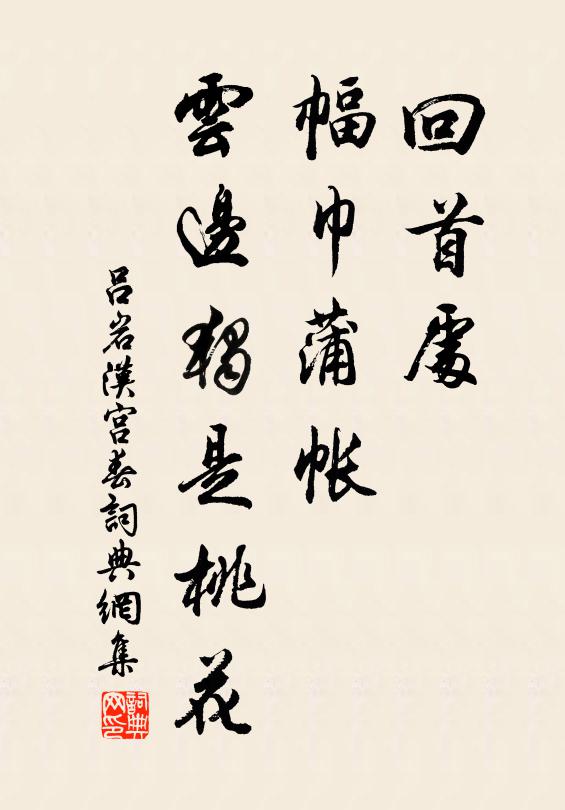 回首處
幅巾蒲帳
雲邊獨是桃花
吕岩漢宮春詞典網集
詞典
网印